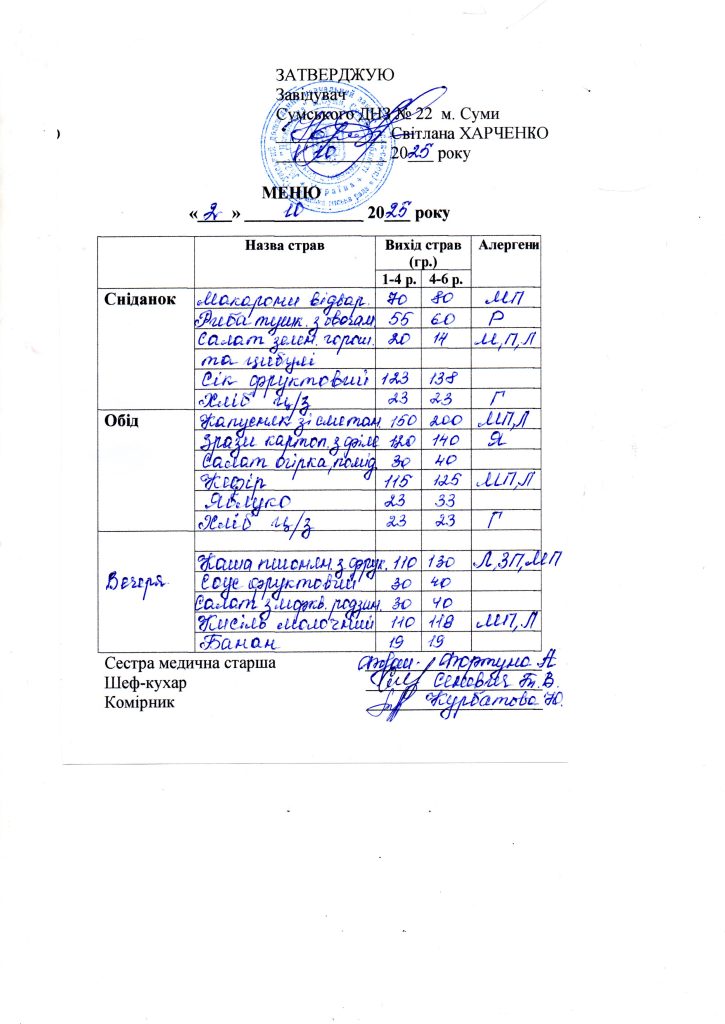 ЗАТВЕРДЖУЮ
Завідувач
Сумського ДНЗ № 22 м. Суми
Світлана ХАРЧЕНКО
1 10 2025 року
МЕНЮ
« 2 » 10 2025 року
Назва страв Вихід страв (гр.) Алергени
1-4 р. 4-6 р.
Сніданок Макарони відвар. 70 80 МП
Риба туш. з овочам 55 60 Р
Салат зелен. горош. 20 14 М,П,Л
та цибулі
Сік фруктовий 123 138
Хліб ц/з 23 23 Г
Обід Капусняк зі сметан 150 200 МП,Л
Зрази картоп. з філе 120 140 Я
Салат огірка, помід. 30 40
Кефір 115 125 МП,Л
Яблуко 23 33
Хліб ц/з 23 23 Г
Вечеря Каша пшонян. з фрук. 110 130 Л,ЗП,МП
Соус фруктовий 30 40
Салат з морк. родзин. 30 40
Кисіль молочний 110 118 МП,Л
Банан 19 19
Сестра медична старша Фортуна А
Шеф-кухар
Комірник Курбатова Ю.